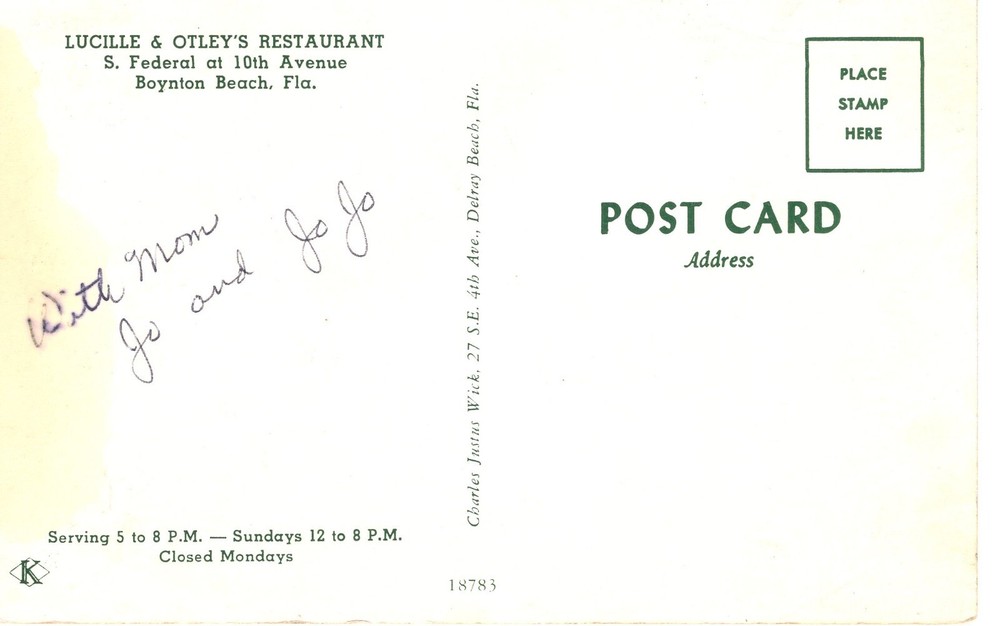 LUCILLE & OTLEY'S RESTAURANT
S. Federal at 10th Avenue
Boynton Beach, Fla.
With Mom
Jo and JoJo
Serving 5 to 8 P.M. — Sundays 12 to 8 P.M.
Closed Mondays
K
18783
Charles Justus Wick, 27 S.E. 4th Ave., Delray Beach, Fla.
PLACE
STAMP
HERE
POST CARD
Address